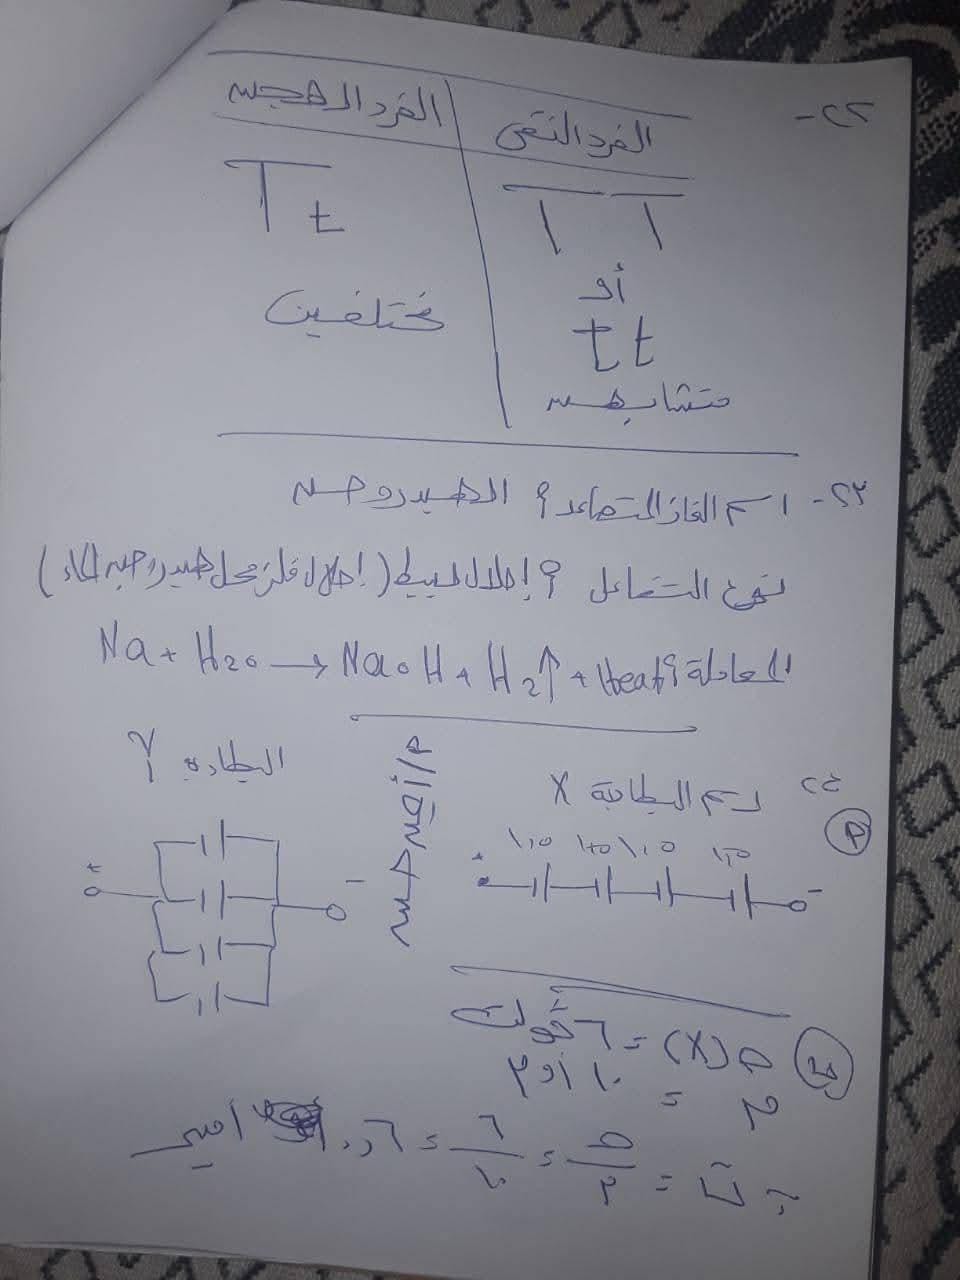 ٢٢-
الفرد النقى الفرد الهجين
TT Tt
أو
tt مختلفين
متشابهين
٢٣- اسم الغاز المتصاعد؟ الهيدروجين
نوع التفاعل؟ إحلال بسيط (إحلال فلز محل هيدروجين الماء)
المعادلة؟ Na + H2O → NaOH + H2↑ + Heat
٢٤
رسم البطارية X البطارية Y
١,٥ ١,٥ ١,٥ ١,٥
+ -
+ -
(X) = ٦ ڤولت
م = ١٠ أوم
∴ ت = جـ/م = ٦/١٠ = ٠,٦ أمبير